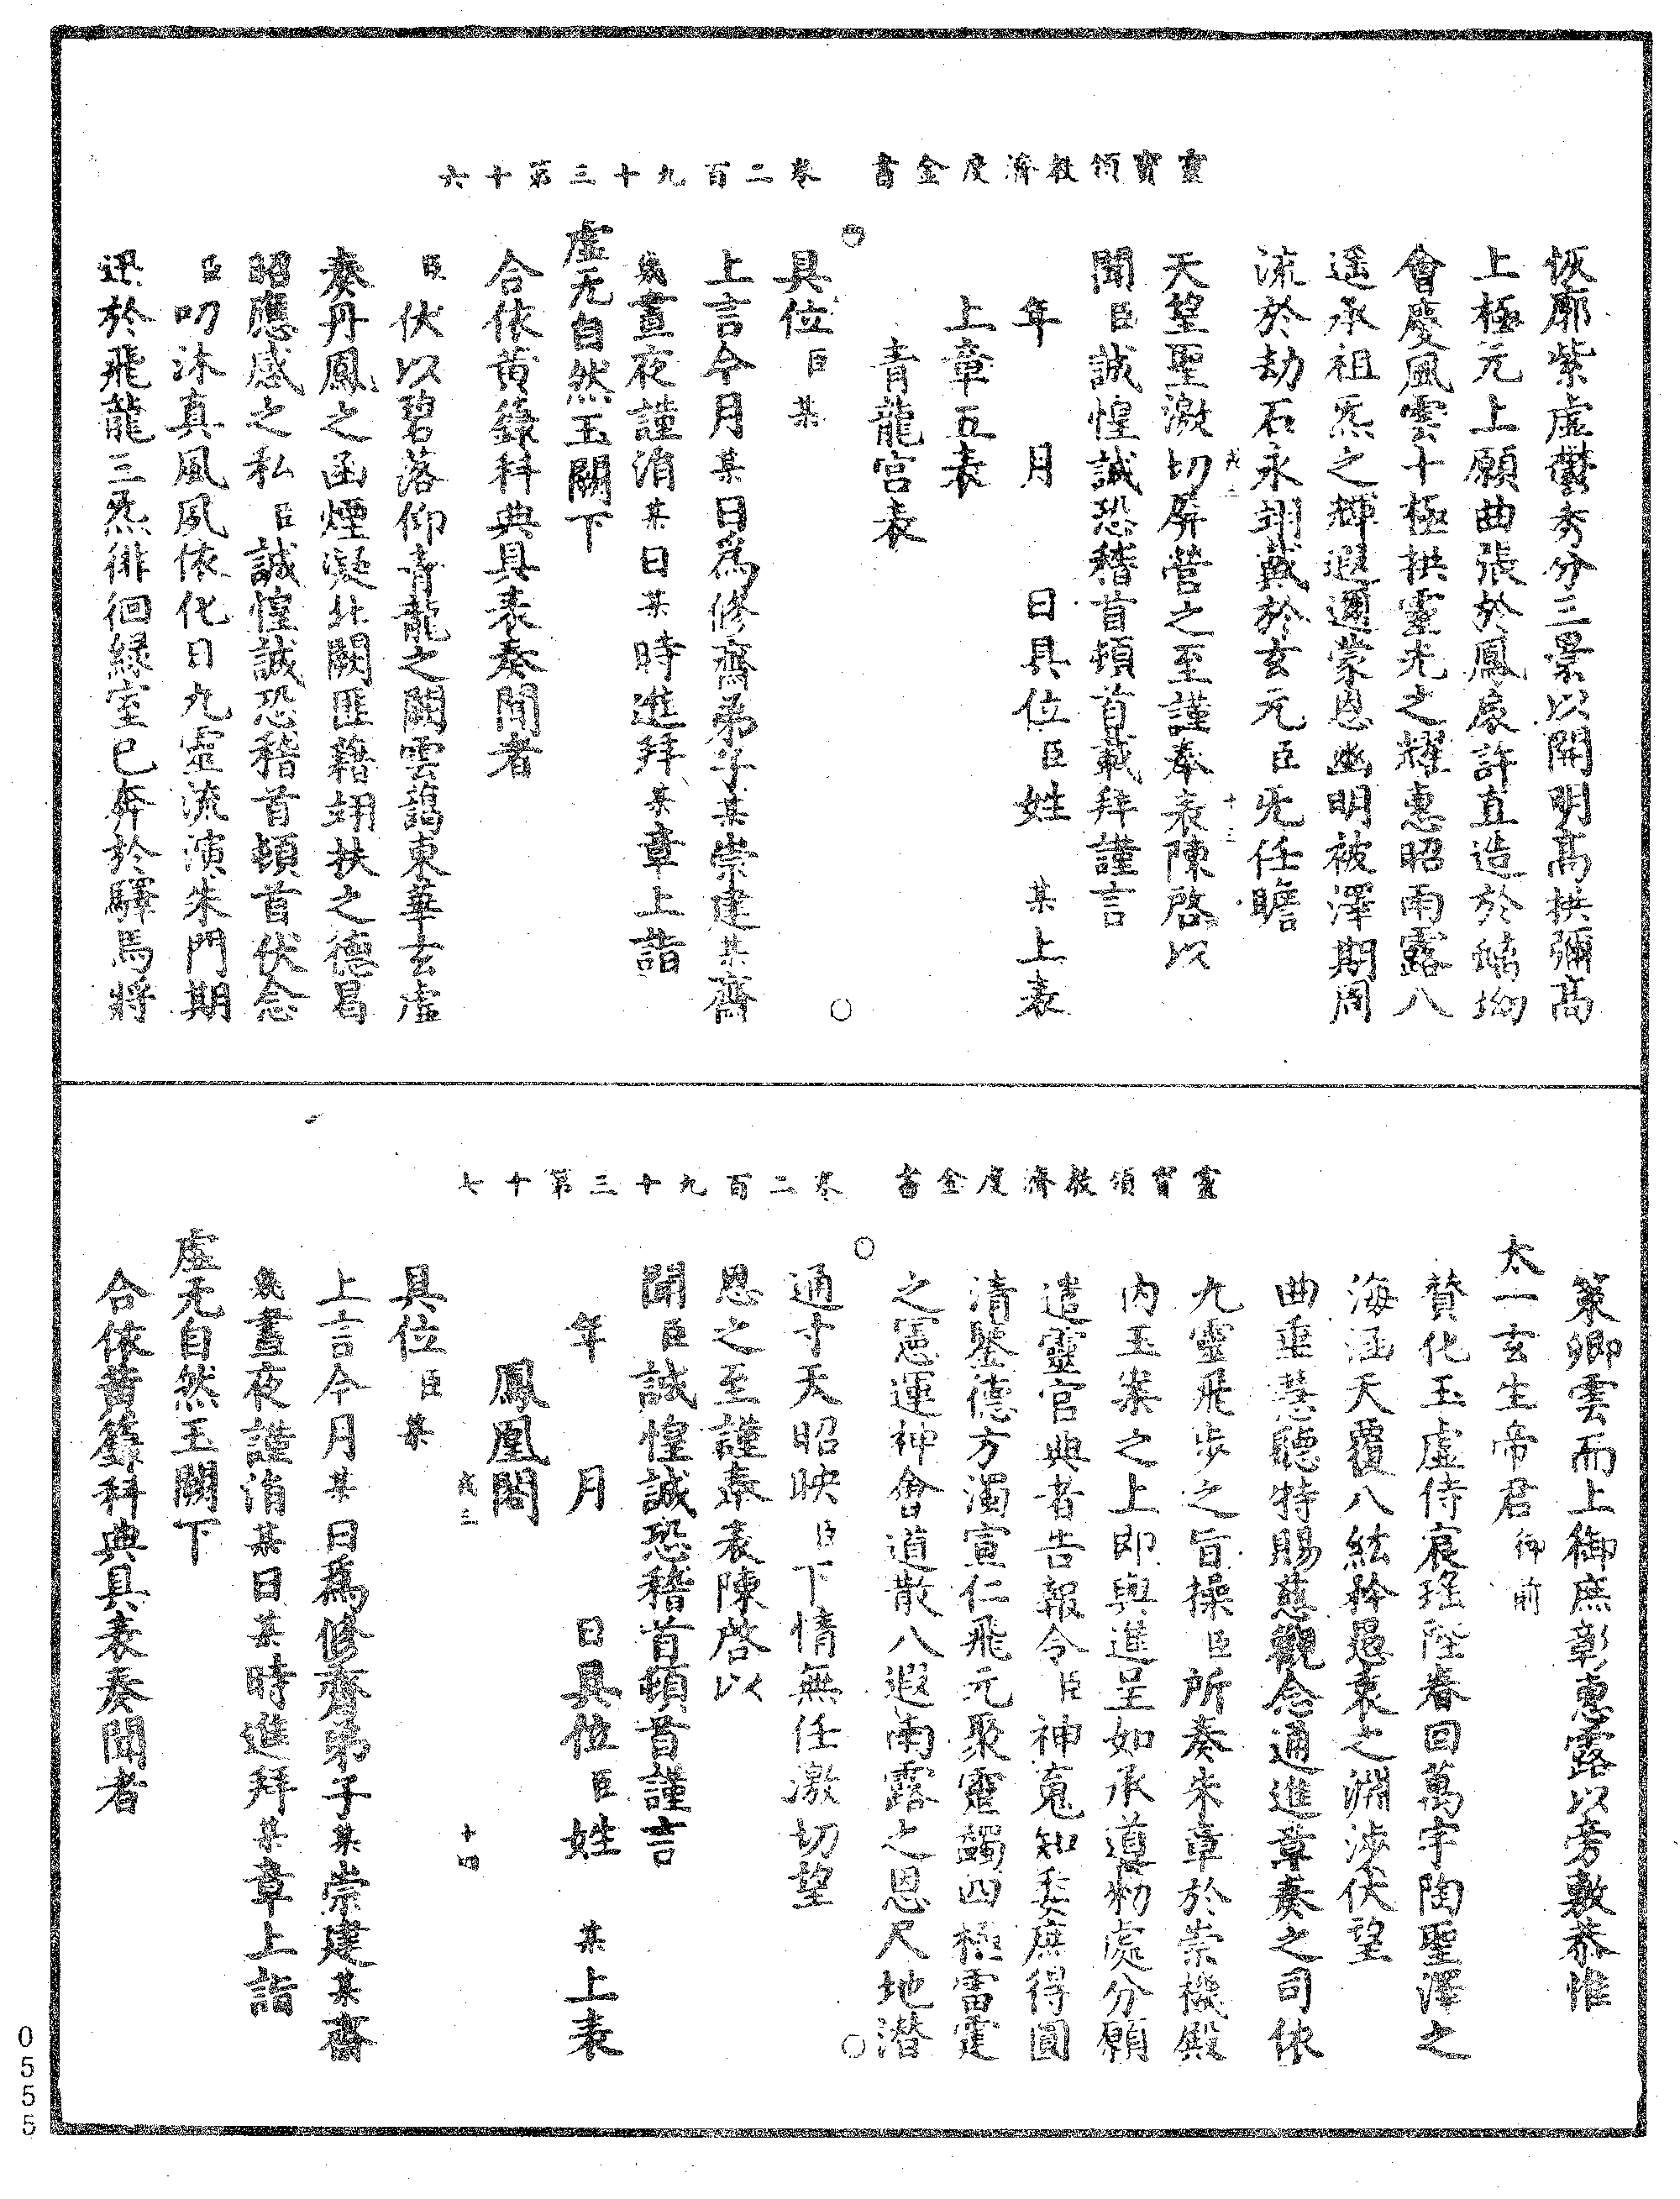 靈寶領教濟度金書 卷二百九十三第十六
恢廓紫虛鬱秀分三景以開明高拱彌高
上極元上願曲張於鳳扆許直造於螭坳
會慶風雲十極拱靈光之耀惠昭雨露八
遥承祖炁之輝遐邇蒙恩幽明被澤期周
流於劫石永翊戴於玄元臣旡任瞻
天望聖激切屏營之至謹奉表陳啓以
聞臣誠惶誠恐稽首頓首載拜謹言
年 月 日具位臣姓 某上表
上章五表
青龍宮表
具位臣某
上言今月某日為修齋弟子某崇建某齋
幾晝夜謹涓某日某時進拜某章上詣
虛无自然玉闕下
合依黃籙科典具表奏聞者
臣伏以碧落仰青龍之闕雲藹東華玄虛
奏丹鳳之函煙凝北闕匪藉翊扶之德曷
昭應感之私臣誠惶誠恐稽首頓首伏念
臣叨沐真風夙依化日九靈流演朱門期
迅於飛龍三炁徘徊緑室已奔於驛馬將
十三
靈寶領教濟度金書 卷二百九十三第十七
策卿雲而上御庶彰惠露以旁敷恭惟
太一玄生帝君御前
贊化玉虛侍宸瑤陛春回萬宇陶聖澤之
海涵天覆八紘矜愚衷之淵涉伏望
曲垂慧聽特賜慈觀念通進章奏之司依
九靈飛步之旨操臣所奏朱章於崇機殿
內玉案之上即與進呈如承道勑處分願
遣靈官典者告報令臣神寬知委庶得圓
清鑒德方濁宣仁飛元聚靈蠲四極雷霆
之憲運神會道散八遐雨露之恩尺地潛
通寸天昭映臣下情無任激切望
恩之至謹奉表陳啓以
聞臣誠惶誠恐稽首頓首謹言
年 月 日具位臣姓 某上表
鳳凰閣
十四
具位臣某
上言今月某日爲修齋弟子某崇建某齋
幾晝夜謹涓某日某時進拜某章上詣
虛无自然玉闕下
合依黃籙科典具表奏聞者
0555